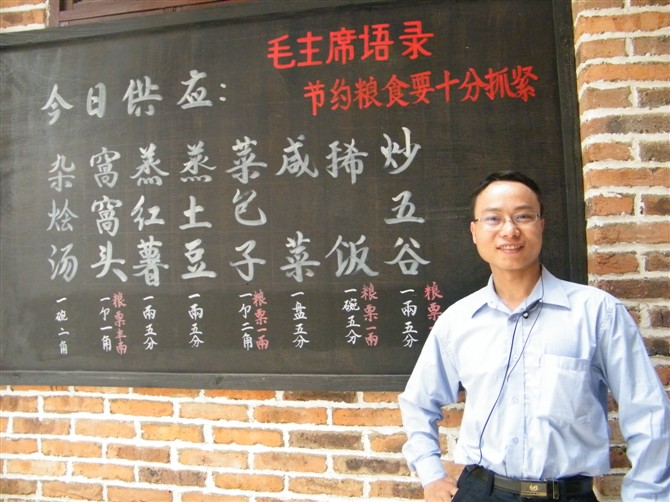 毛主席语录
节约粮食要十分抓紧
今日供应:
杂烩汤
一碗二角
窩窩头
一个一角
粮票
蒸红薯
一兩五分
蒸土豆
一兩五分
菜包子
一个二角
粮票一兩
咸菜
一盘五分
稀饭
一碗五分
粮票一兩
炒五谷
一兩五分
粮票